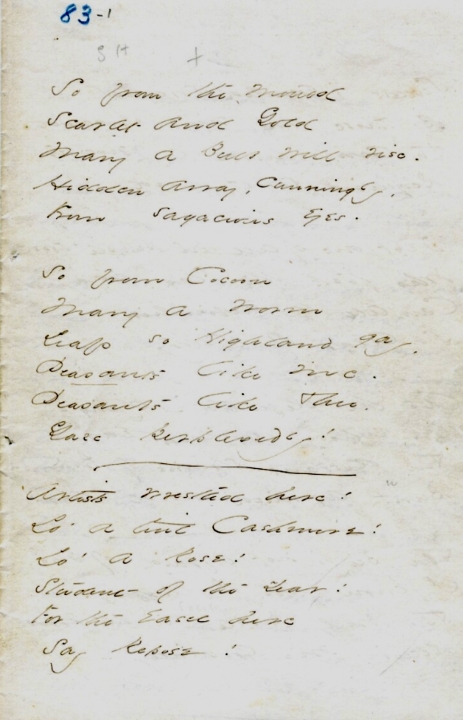 83-1
SH +
So from the mould
Scarlet and Gold
Many a Bulb will rise.
Hidden away, Cunningly,
From sagacious Eyes.
So from Cocoon
Many a Worm
Leap so Highland gay,
Peasants like me.
Peasants like Thee.
Gaze perplexedly!
Artists wrestled here!
Lo' a tint Cashmere!
Lo' a Rose!
Student of the Year!
For the Easel here
Say Repose!